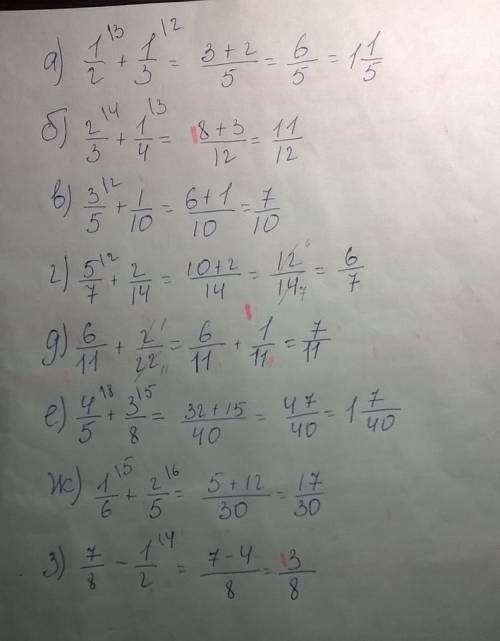 а) 1/2 \3 + 1/3 \2 = (3+2)/5 = 6/5 = 1 1/5
б) 2/3 \4 + 1/4 \3 = (8+3)/12 = 11/12
в) 3/5 \2 + 1/10 = (6+1)/10 = 7/10
г) 5/7 \2 + 2/14 = (10+2)/14 = 12/14 6 7 = 6/7
д) 6/11 + 2/22 1 11 = 6/11 + 1/11 = 7/11
е) 4/5 \8 + 3/8 \5 = (32+15)/40 = 47/40 = 1 7/40
ж) 1/6 \5 + 2/5 \6 = (5+12)/30 = 17/30
з) 7/8 - 1/2 \4 = (7-4)/8 = 3/8